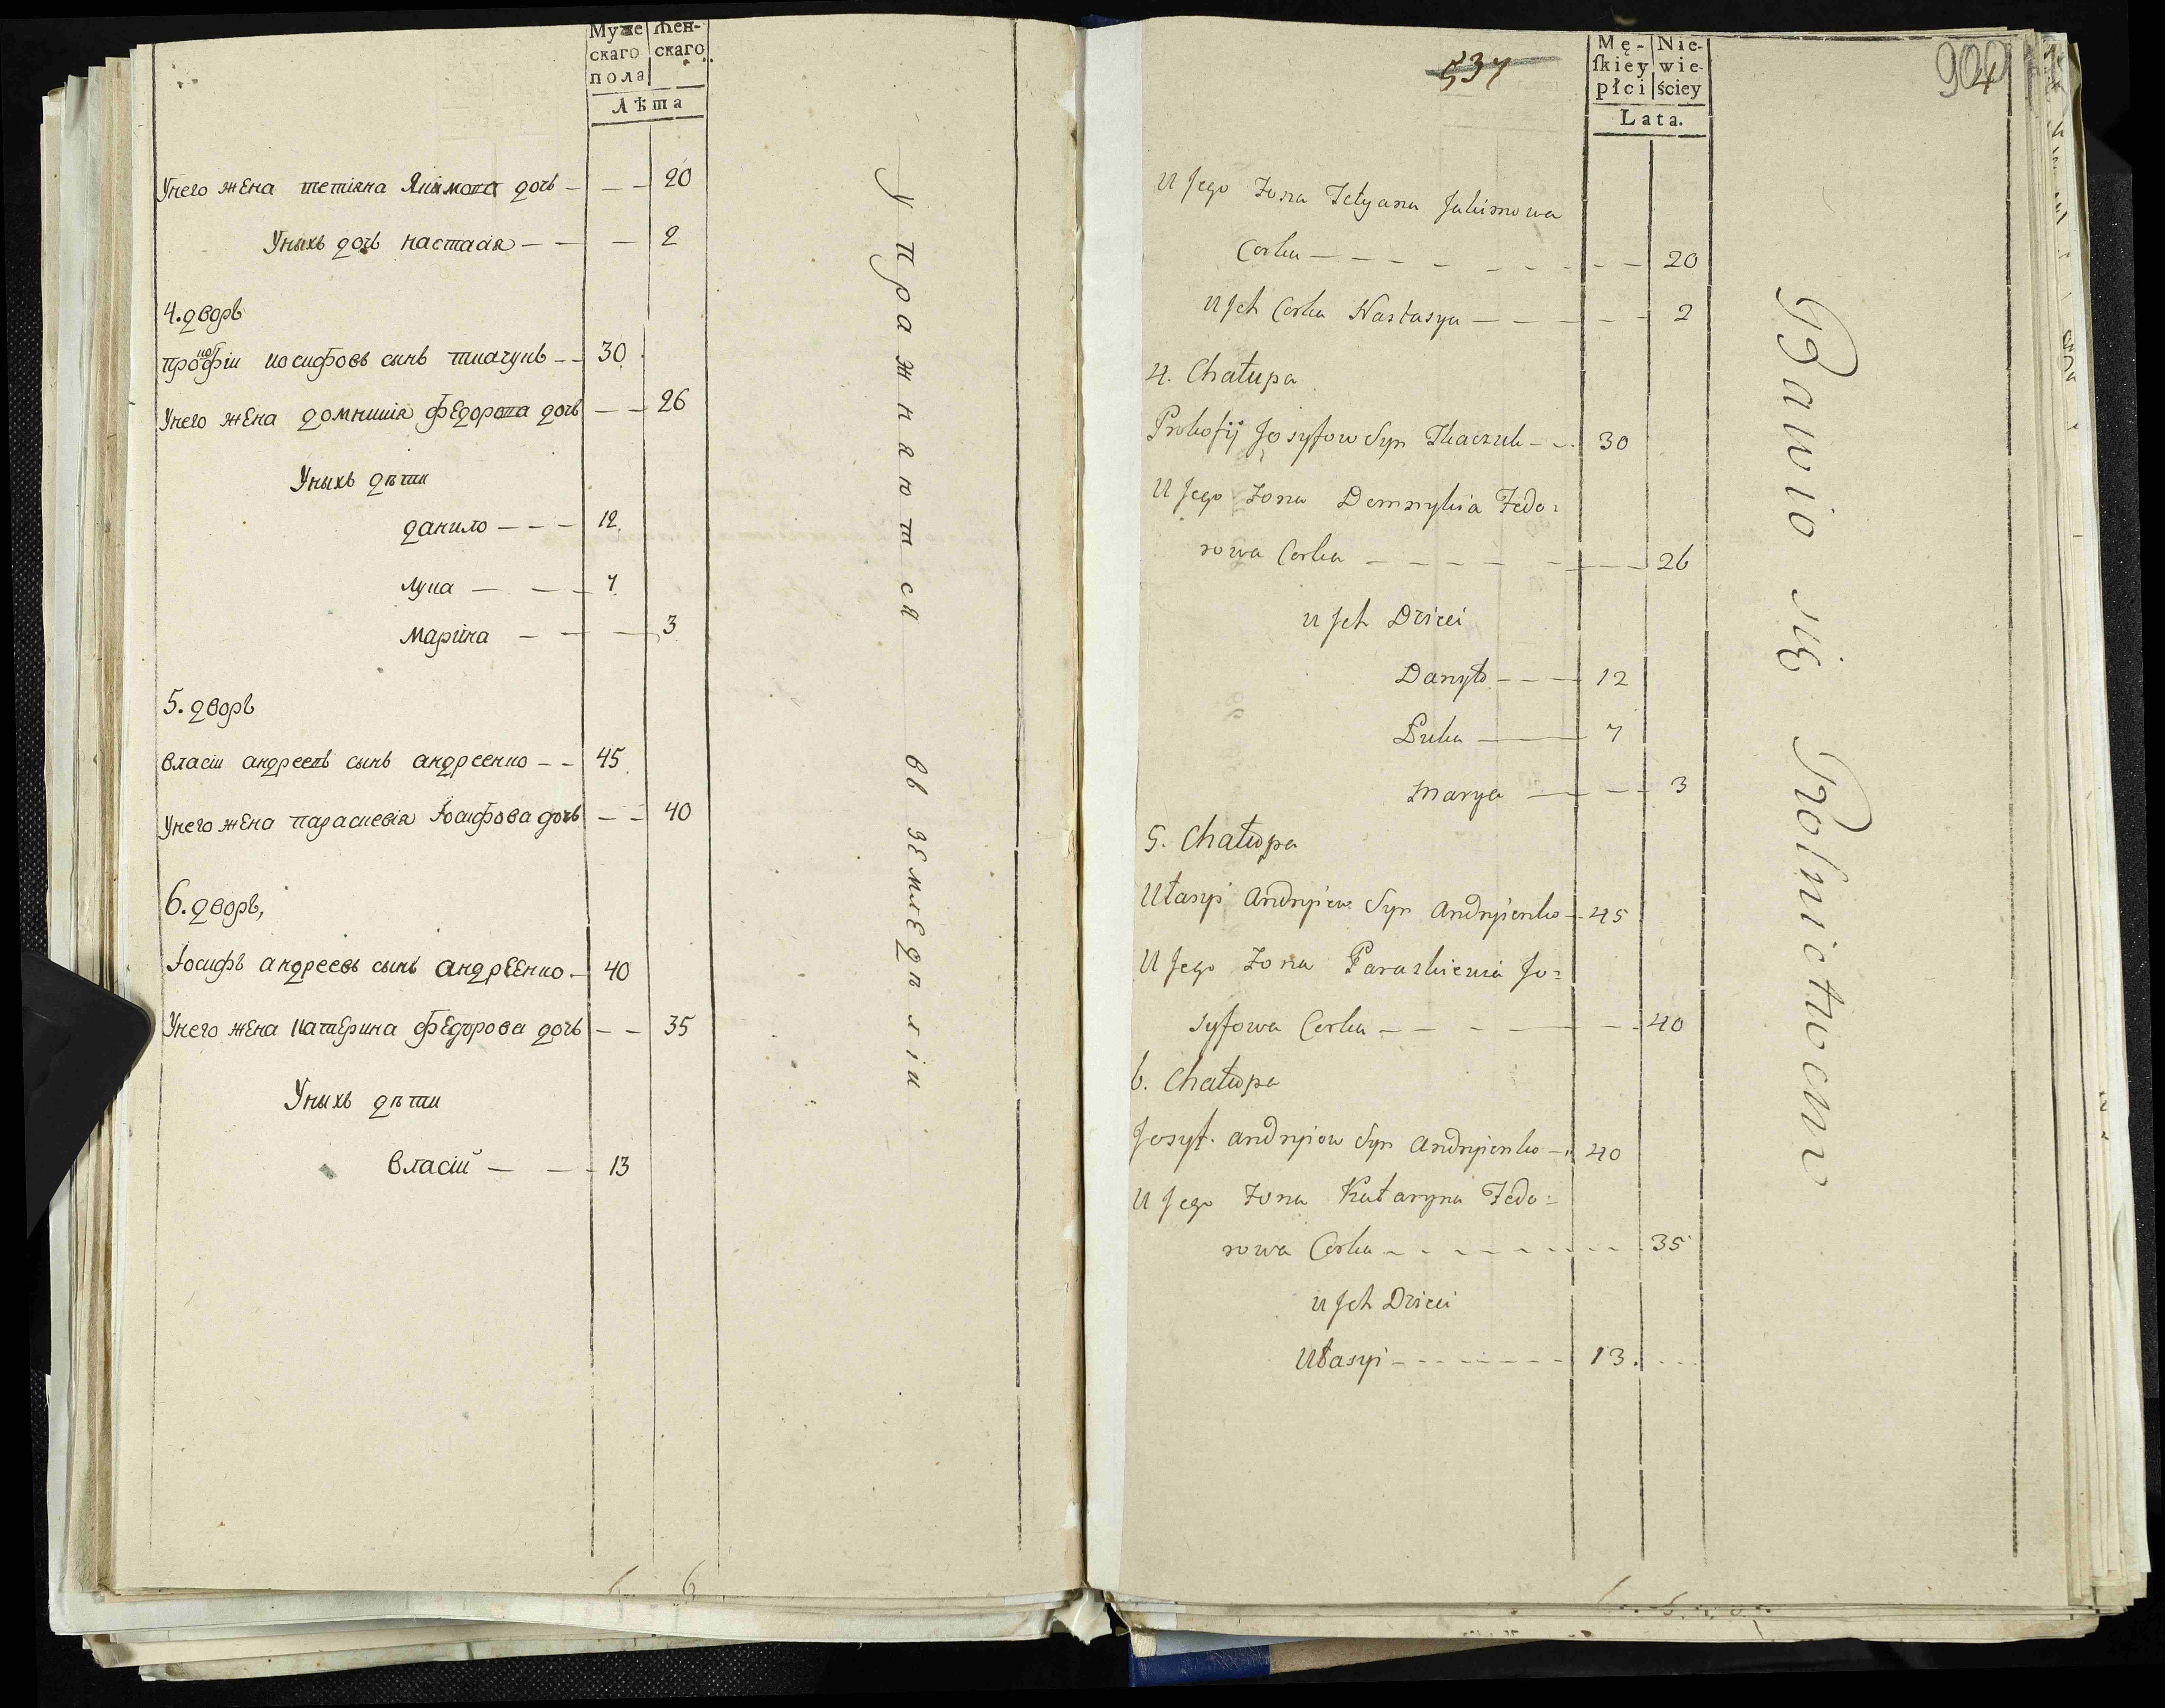 Муже Жен-
скаго скаго
пола
Лѣта
Унего жена тетіяна Якимова дочь - - - 20
Уныхъ дочь настасія - - - 2
4. дворъ
прокофіи иосифовъ сынъ ткачукъ - - 30
Унего жена домникія федорова дочь - - 26
Уныхъ дѣти
данило - - - 12
лука - - - 7
марина - - - 3
5. дворъ
власіи андреевъ сынъ андреенко - - 45
Унего жена параскевія Іосифова дочь - - 40
6. дворъ,
Іосифъ андреевъ сынъ андреенко - 40
Унего жена катерина федорова дочь - - 35
Уныхъ дѣти
власіи - - - 13
Упражняются въ земледѣліи
6 6
537
904
Mę- Nie-
ſkiey wie-
płci ściey
Lata.
U Jego Zona Tetyana Jakimowa
Corka - - - - 20
U Jch Corka Nastasya - - - 2
4. Chałupa
Prokofij Josyfow Syn Tkaczuk - - 30
U Jego Zona Domnykia Fedo:
rowa Corka - - - - 26
U Jch Dzieci
Danyło - - - 12
Łuka - - - 7
Marya - - - 3
5. Chałupa
Ułasyi Andryiew Syn Andryienko - 45
U Jego Zona Paraskiewia Jo:
syfowa Corka - - - - 40
6. Chałupa
Josyf. Andryiow Syn Andryienko - 40
U Jego Zona Kataryna Fedo:
rowa Corka - - - - 35
U Jch Dzieci
Ułasyi - - - - 13.
Bawio się Rolnictwem